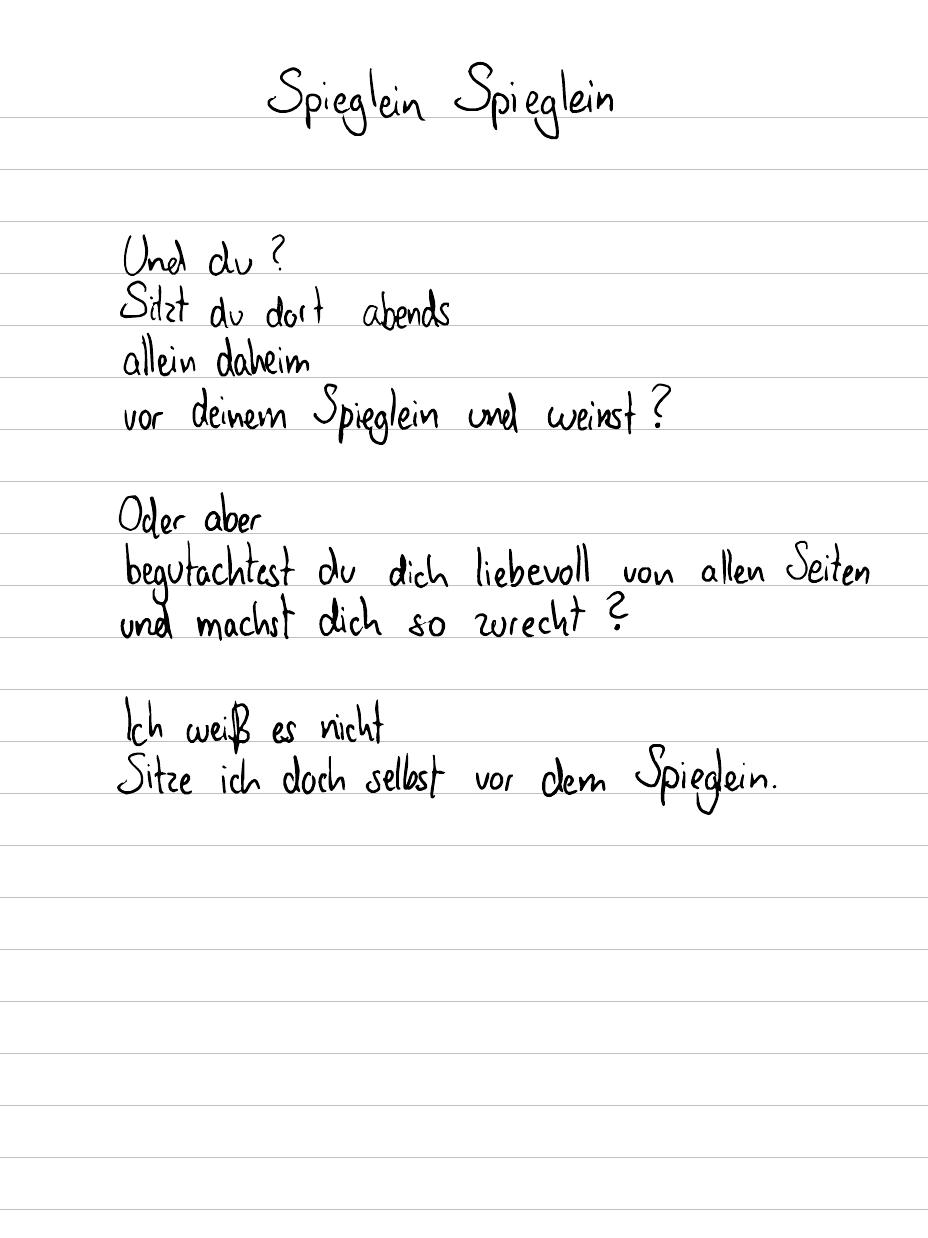 Spieglein Spieglein
Und du?
Sitzt du dort abends
allein daheim
vor deinem Spieglein und weinst?
Oder aber
begutachtest du dich liebevoll von allen Seiten
und machst dich so zurecht?
Ich weiß es nicht
Sitze ich doch selbst vor dem Spieglein.